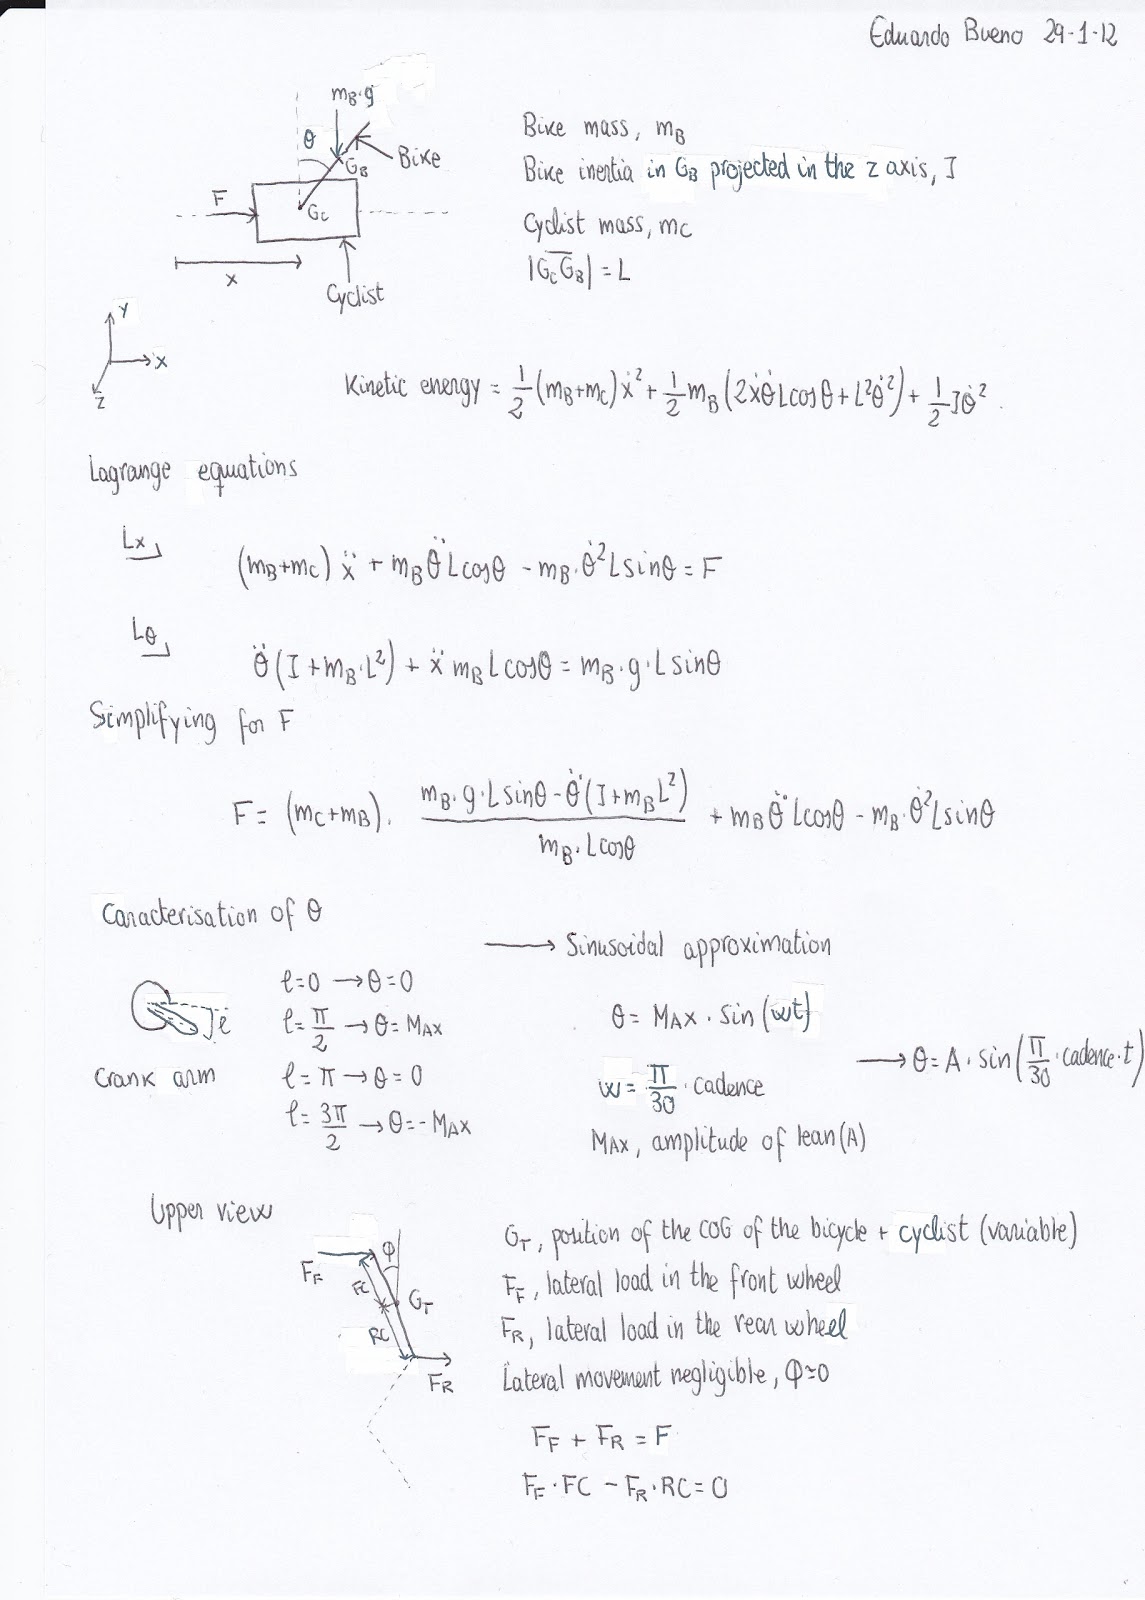 Eduardo Bueno 29-1-12
m_B·g
θ
G_B
Bike
F
G_C
x
Cyclist
Y
X
Z
Bike mass, m_B
Bike inertia in G_B projected in the z axis, I
Cyclist mass, m_C
|G_C G_B| = L
Kinetic energy = 1/2 (m_B+m_C) ẋ² + 1/2 m_B (2ẋθ̇Lcosθ + L²θ̇²) + 1/2 Iθ̇².
Lagrange equations
Lx
(m_B+m_C) ẍ + m_B θ̈ Lcosθ - m_B·θ̇² Lsinθ = F
Lθ
θ̈ (I+m_B·L²) + ẍ m_B Lcosθ = m_B·g·Lsinθ
Simplifying for F
F = (m_C+m_B) · (m_B·g·Lsinθ - θ̈ (I+m_B L²)) / (m_B·Lcosθ) + m_B θ̈ Lcosθ - m_B·θ̇² Lsinθ
Caracterisation of θ
→ Sinusoidal approximation
ℓ
Crank arm
ℓ=0 → θ=0
ℓ=π/2 → θ= MAX
ℓ=π → θ=0
ℓ=3π/2 → θ=-MAX
θ = MAX · sin(ωt)
ω = π/30 · cadence
MAX, amplitude of lean (A)
→ θ = A· sin(π/30 · cadence · t)
Upper view
F_F
φ
FC
G_T
RC
F_R
G_T, position of the COG of the bicycle + cyclist (variable)
F_F, lateral load in the front wheel
F_R, lateral load in the rear wheel
Lateral movement negligible, φ≃0
F_F + F_R = F
F_F · FC - F_R · RC = 0